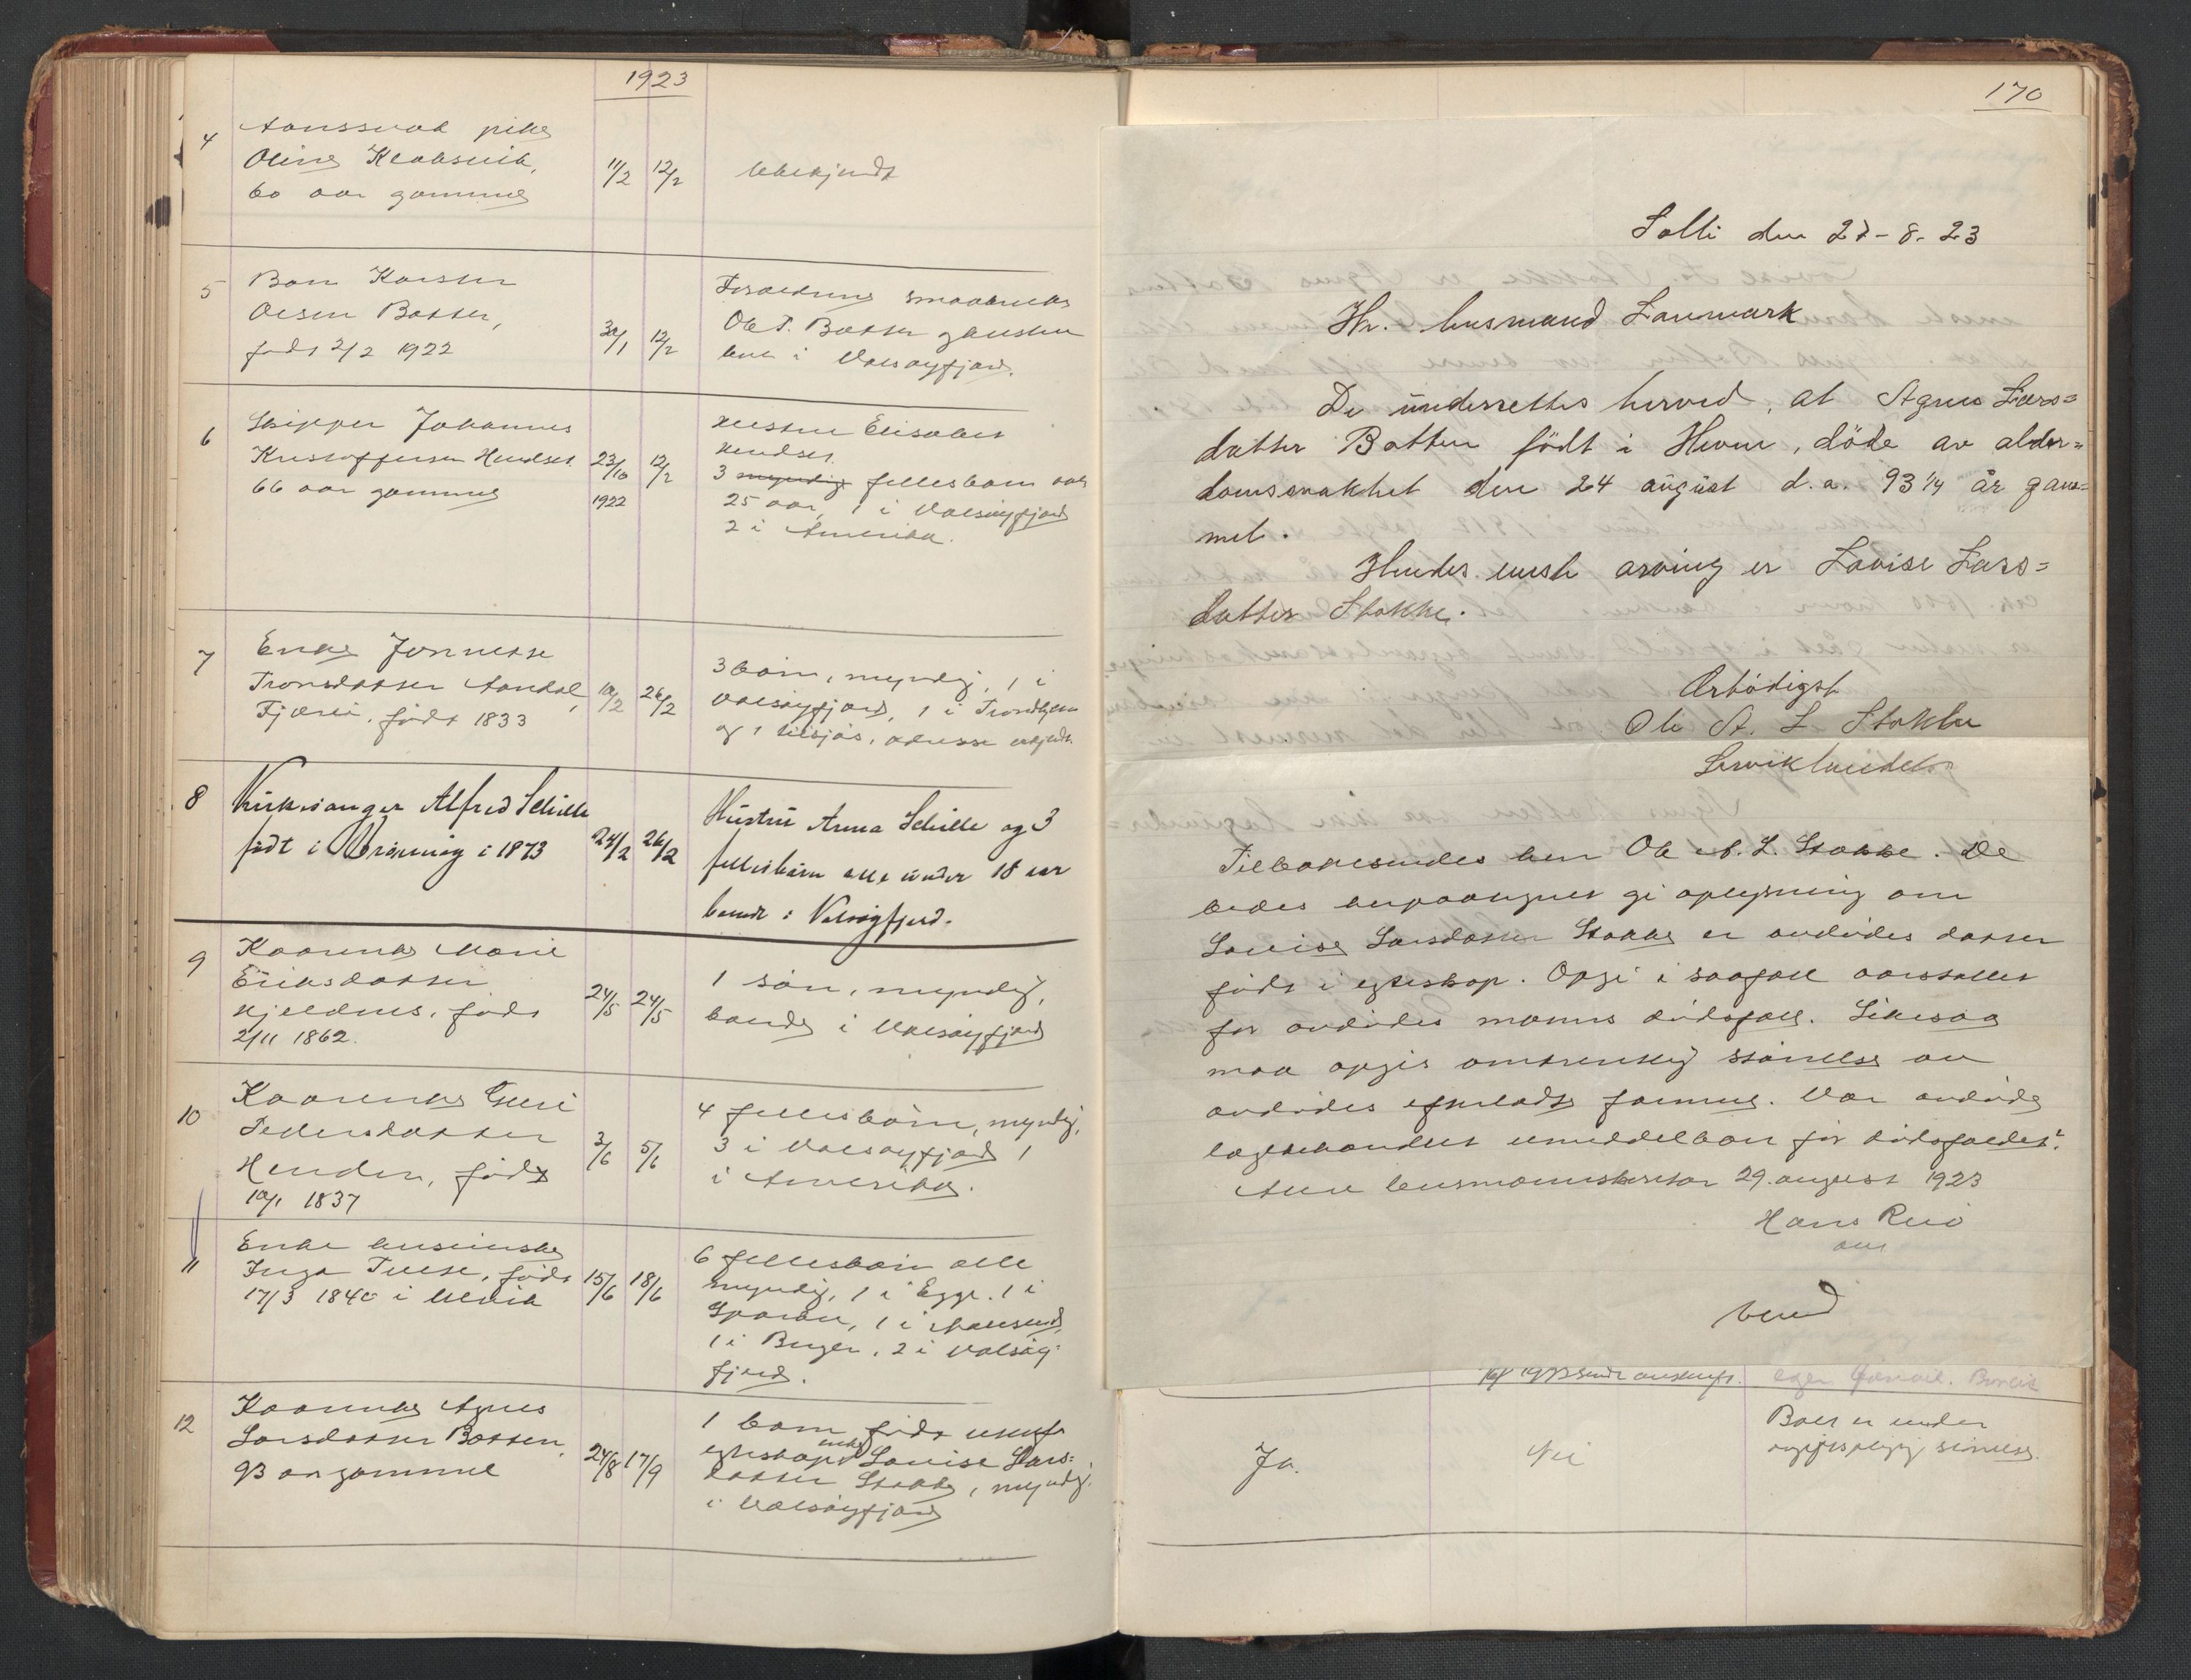 1923
4
pike
Oline Klaksvik,
60 aar gammel
11/2 12/2
Ubekjendt
5
Barn Karsten
Olsen Botten,
født 2/2 1922
30/1 12/2
Forældrene smaabruker
Ole P. Botten
bor i Valsøyfjord.
6
Skipper Johannes
Kristoffersen Hendset
66 aar gammel
23/10 12/2
1922
Hustru Elisabet
Hendset.
3 myndig fellesbarn over
25 aar, 1 i Valsøyfjord
2 i Amerika.
7
Enke
Tronsdatter Aandal,
Fjærli, født 1833
10/2 26/2
3 barn, myndig, 1 i
Valsøyfjord, 1 i Trondhjem
og 1 tilsjøs, adresse ubekjendt
8
Kirkesanger Alfred Schille
født i i 1873
24/2 26/2
Hustru Anna Schille og 3
fellesbarn alle under 18 aar
boende i Valsøyfjord.
9
Kaarenke Marie
Eriksdatter
Kjeldnes, født
2/11 1862.
24/5 24/5
1 søn, myndig,
bonde i Valsøyfjord
10
Kaarenke Guri
Pedersdatter
Henden, født
10/1 1837
3/6 5/6
4 fellesbørn, myndig,
3 i Valsøyfjord 1
i Amerika.
11
Enke
Inga Tusse, født
17/3 1840 i Ulvik
15/6 18/6
6 fellesbørn alle
myndig, 1 i Egge. 1 i
Sparbu, 1 i Namsund,
1 i Bergen, 2 i Valsøy-
fjord.
12
Kaarenke Agnes
Larsdatter Botten,
93 aar gammel
24/8 17/9
1 barn født utenfor
egteskap, Lovise Lars-
datter Stokke, myndig.
i Valsøyfjord
170
Solli den 27-8-23
Hr. lensmand Lanmark
De underrettes herved, at Agnes Lars=
datter Botten född i Hevne, döde av alder=
domssvakhet den 24 august d.a. 93 1/4 år gam=
mel.
Hendes eneste arving er Lovise Lars=
datter Stokke.
Ærbödigst
Ole A. L. Stokke
Tilbakesendes herr Ole A. L. Stokke. De
bedes herpaategnet gi oplysning om
Lovise Larsdatter Stokke er avdødes datter
født i egteskap. Opgi i saafall aarstallet
for avdødes manns dødsfall. Likesaa
maa opgis omtrentlig størrelse av
avdødes efterladte formue. Var avdøde
lægebehandlet umiddelbart før dødsfaldet?
Aure lensmannskontor 29. august 1923
Hans Reiø
ass
vend
Ja.
Nei
Boet er under
avgiftspligtig størrelse.